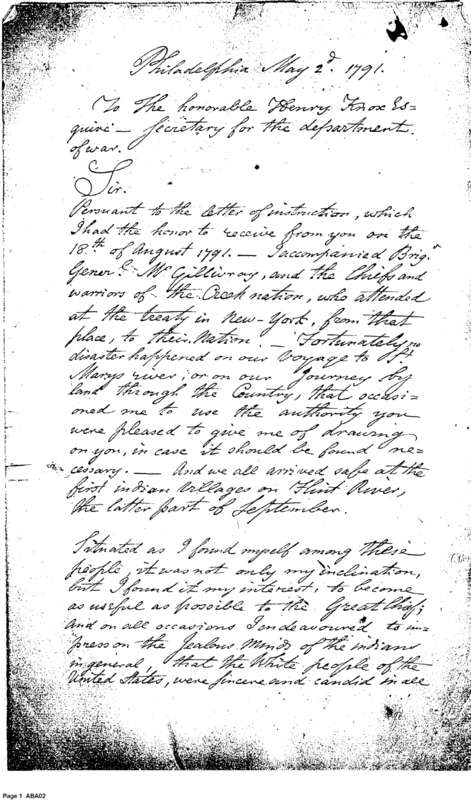 Philadelphia May 2d. 1791.
To The honorable Henry Knox Es=
quire — secretary for the department
of war.
Sir.
Persuant to the letter of instruction, which
I had the honor to receive from you on the
18th of August 1791. — I accompanied Brigr
Generl. McGillivray, and the Chiefs and
warriors of the Creek nation, who attended
at the treaty in New-York, from that
place, to their Nation. — Fortunately no
disaster happened on our Voyage to St
Marys river, or on our Journey by
land through the Country, that occasi=
oned me to use the authority you
were pleased to give me of drawing
on you, in case it should be found ne=
cessary. — And we all arrived safe at the
first indian Villages on Flint River,
the latter part of September.
Situated as I found myself among these
people, it was not only my inclination,
but I found it my interest, to become
as usefful as possible to the Great Chief;
and on all occasions I endeavoured to im=
press on the Jealous Minds of the indians
in general, that the White people of the
United States, were sincere and candid in all
Page 1 ABA02